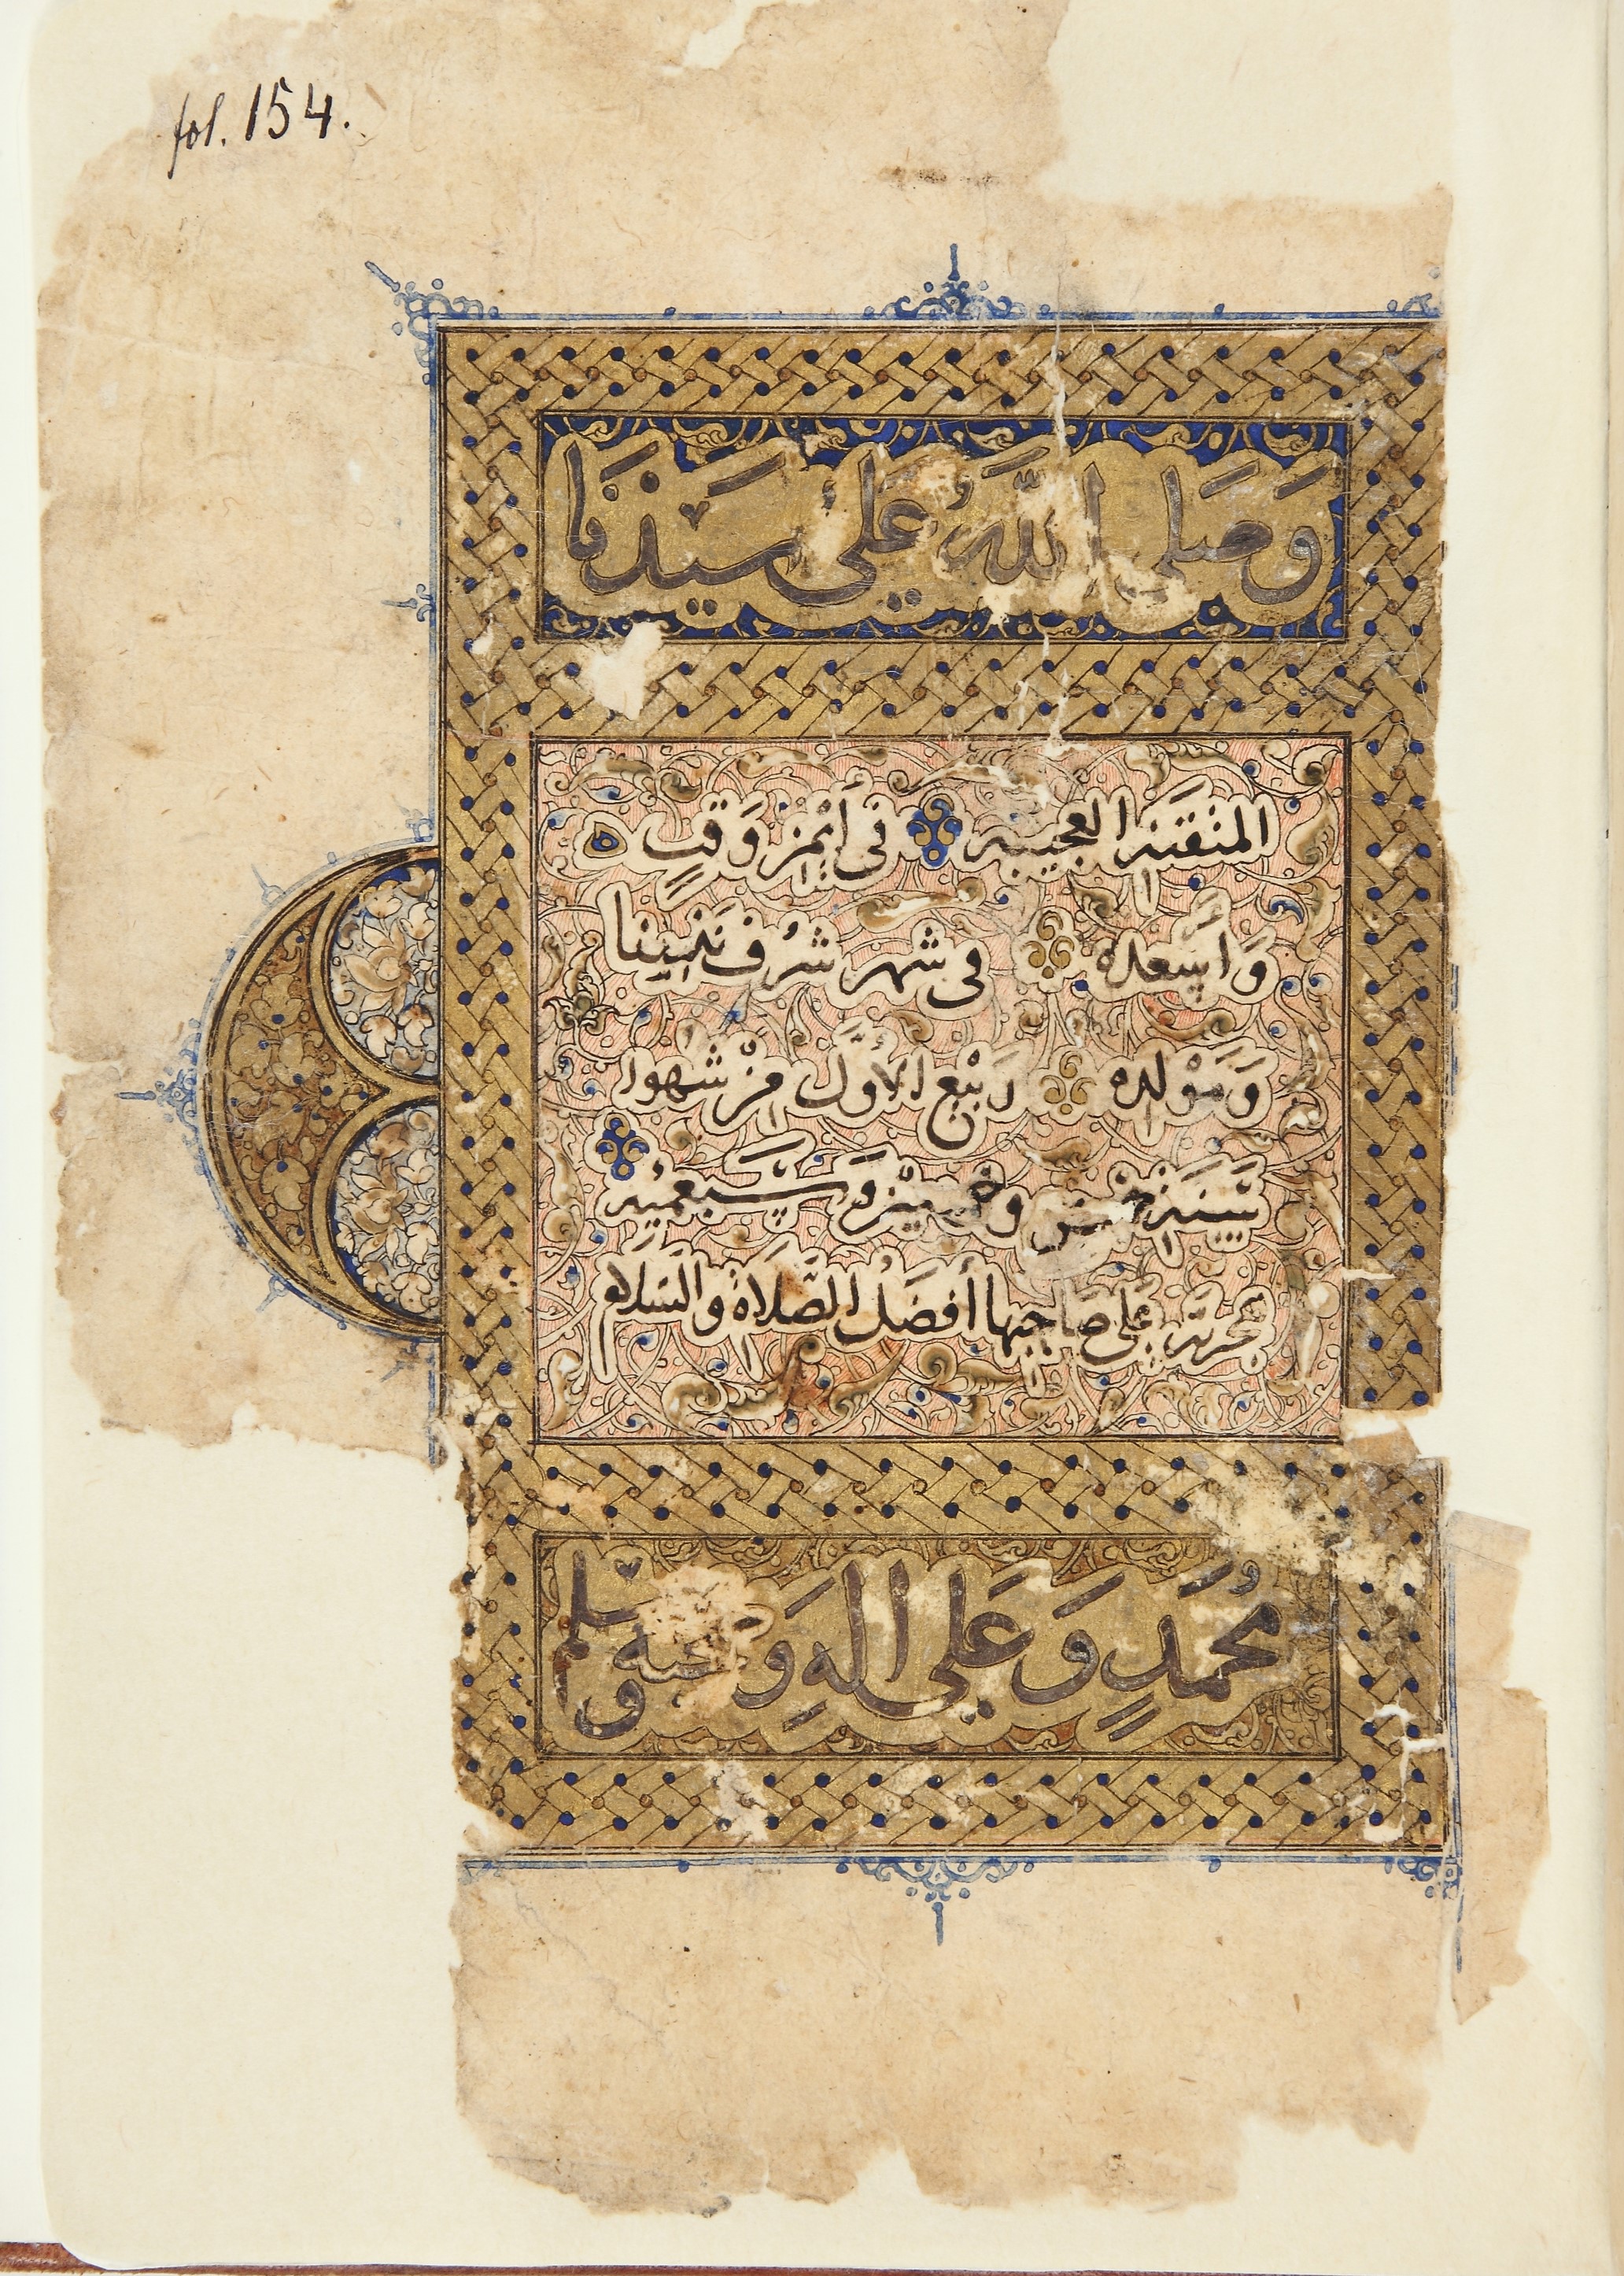 fol. 154.
وَصَلَى اللَّهُ عَلَى سَيِّدِنَا
المتْقَنَه العجيبه في أَيْمَنِ وَقتٍ
وَأسْعده في شهر شرُف بنَبينا
وَمَوْلده رَبيْع الأوَّل مِنْ شهُور
سَنَة خمس وخمسِيْن وَسَبعمِئه
هجرته عَلى صَاحِبها أفضَلُ الصَّلَاة وَالسَلام
مُحُمَدٍ وَعَلى الهِ وَصحبه وسلم